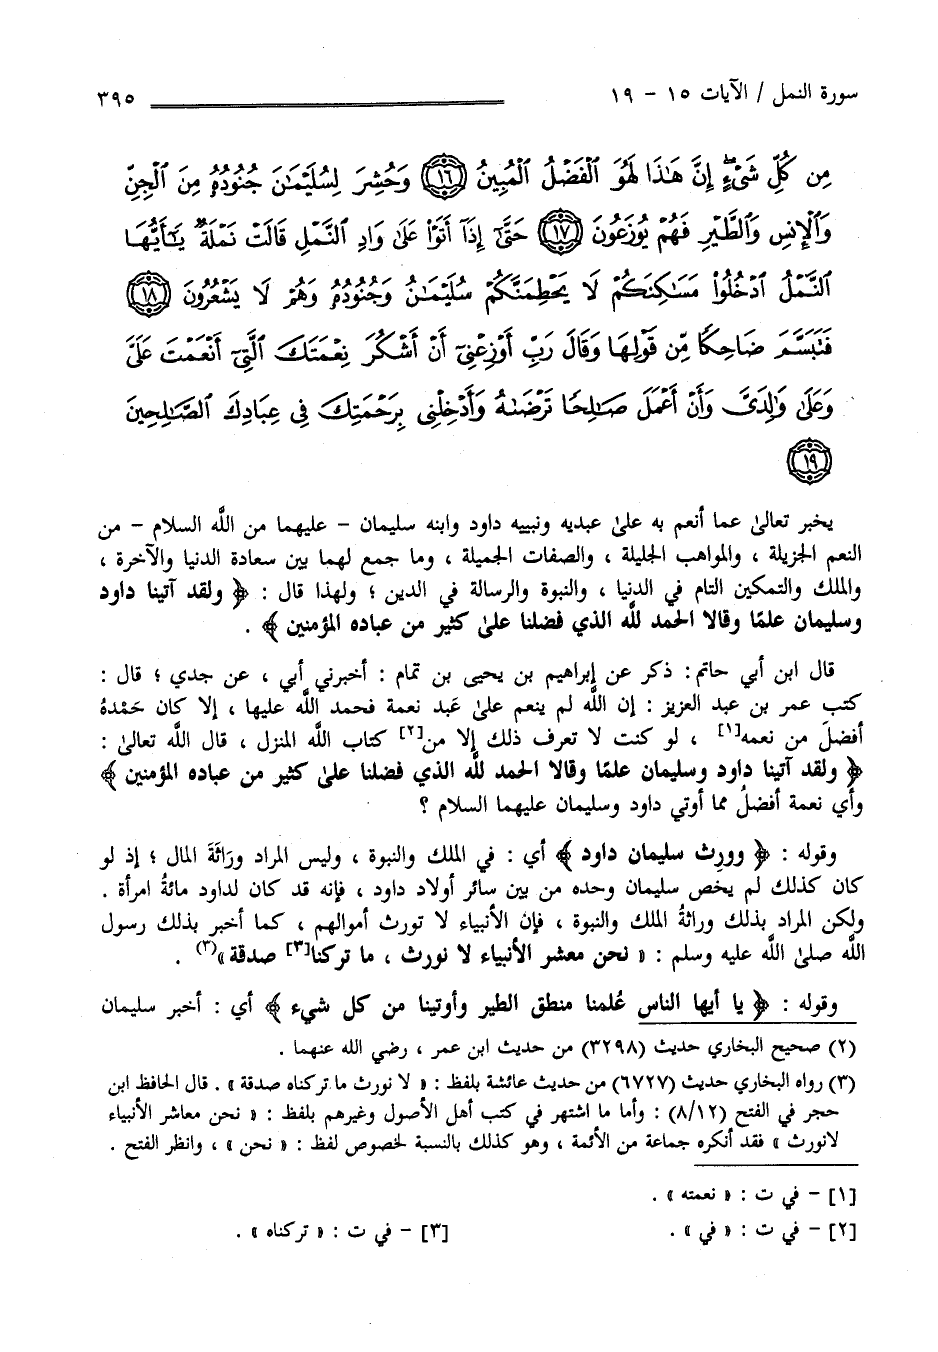 سورة النمل / الآيات ١٥ - ١٩ ٣٩٥
مِن كُلِّ شَىْءٍ إِنَّ هَٰذَا لَهُوَ ٱلْفَضْلُ ٱلْمُبِينُ ١٦ وَحُشِرَ لِسُلَيْمَٰنَ جُنُودُهُۥ مِنَ ٱلْجِنِّ
وَٱلْإِنسِ وَٱلطَّيْرِ فَهُمْ يُوزَعُونَ ١٧ حَتَّىٰٓ إِذَآ أَتَوْا۟ عَلَىٰ وَادِ ٱلنَّمْلِ قَالَتْ نَمْلَةٌ يَٰٓأَيُّهَا
ٱلنَّمْلُ ٱدْخُلُوا۟ مَسَٰكِنَكُمْ لَا يَحْطِمَنَّكُمْ سُلَيْمَٰنُ وَجُنُودُهُۥ وَهُمْ لَا يَشْعُرُونَ ١٨
فَتَبَسَّمَ ضَاحِكًا مِّن قَوْلِهَا وَقَالَ رَبِّ أَوْزِعْنِىٓ أَنْ أَشْكُرَ نِعْمَتَكَ ٱلَّتِىٓ أَنْعَمْتَ عَلَىَّ
وَعَلَىٰ وَٰلِدَىَّ وَأَنْ أَعْمَلَ صَٰلِحًا تَرْضَىٰهُ وَأَدْخِلْنِى بِرَحْمَتِكَ فِى عِبَادِكَ ٱلصَّٰلِحِينَ
١٩
يخبر تعالىٰ عما أنعم به علىٰ عبديه ونبييه داود وابنه سليمان - عليهما من اللَّه السلام - من
النعم الجزيلة ، والمواهب الجليلة ، والصفات الجميلة ، وما جمع لهما بين سعادة الدنيا والآخرة ،
والملك والتمكين التام في الدنيا ، والنبوة والرسالة في الدين ؛ ولهذا قال : ﴿ ولقد آتينا داود
وسليمان علمًا وقالا الحمد للَّه الذي فضلنا علىٰ كثير من عباده المؤمنين ﴾ .
قال ابن أبي حاتم : ذكر عن إبراهيم بن يحيى بن تمام : أخبرني أبي ، عن جدي ؛ قال :
كتب عمر بن عبد العزيز : إن اللَّه لم ينعم علىٰ عَبد نعمة فحمد اللَّه عليها ، إلا كان حَمْدهُ
أفضلَ من نعمه[١] ، لو كنت لا تعرف ذلك إلا من[٢] كتاب اللَّه المنزل ، قال اللَّه تعالىٰ :
﴿ ولقد آتينا داود وسليمان علمًا وقالا الحمد للَّه الذي فضلنا علىٰ كثير من عباده المؤمنين ﴾
وأي نعمة أفضلُ مما أوتي داود وسليمان عليهما السلام ؟
وقوله : ﴿ وورث سليمان داود ﴾ أي : في الملك والنبوة ، وليس المراد وِرَاثَةَ المال ؛ إذ لو
كان كذلك لم يخص سليمان وحده من بين سائر أولاد داود ، فإنه قد كان لداود مائةُ امرأة .
ولكن المراد بذلك وراثةُ الملك والنبوة ، فإن الأنبياء لا تورث أموالهم ، كما أخبر بذلك رسول
اللَّه صلىٰ اللَّه عليه وسلم : « نحن معشر الأنبياء لا نورث ، ما تركنا[٣] صدقة »(٣) .
وقوله : ﴿ يا أيها الناس عُلمنا منطق الطير وأوتينا من كل شيء ﴾ أي : أخبر سليمان
(٢) صحيح البخاري حديث (٣٢٩٨) من حديث ابن عمر ، رضي الله عنهما .
(٣) رواه البخاري حديث (٦٧٢٧) من حديث عائشة بلفظ : « لا نورث ما تركناه صدقة » . قال الحافظ ابن
حجر في الفتح (٨/١٢) : وأما ما اشتهر في كتب أهل الأصول وغيرهم بلفظ : « نحن معاشر الأنبياء
لانورث » فقد أنكره جماعة من الأئمة ، وهو كذلك بالنسبة لخصوص لفظ : « نحن » ، وانظر الفتح .
[١] - في ت : « نعمته » .
[٢] - في ت : « في » . [٣] - في ت : « تركناه » .